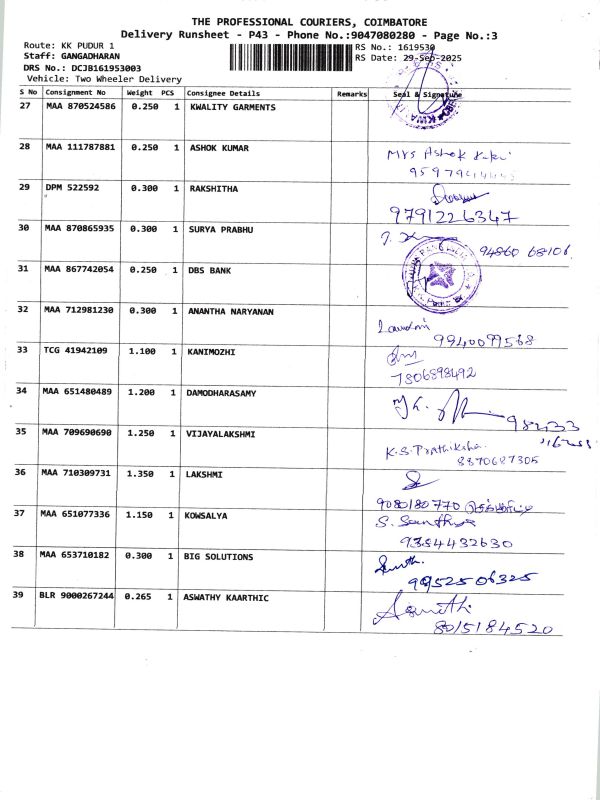 THE PROFESSIONAL COURIERS, COIMBATORE
Delivery Runsheet - P43 - Phone No.:9047080280 - Page No.:3
Route: KK PUDUR 1
RS No.: 1619530
Staff: GANGADHARAN
RS Date: 29-Sep-2025
DRS No.: DCJB161953003
Vehicle: Two Wheeler Delivery
S No Consignment No Weight PCS Consignee Details Remarks Seal & Signature
27 MAA 870524586 0.250 1 KWALITY GARMENTS
28 MAA 111787881 0.250 1 ASHOK KUMAR
Mrs Ashok
29 DPM 522592 0.300 1 RAKSHITHA
9791226347
30 MAA 870865935 0.300 1 SURYA PRABHU
94860 68106
31 MAA 867742054 0.250 1 DBS BANK
32 MAA 712981230 0.300 1 ANANTHA NARYANAN
9940099568
33 TCG 41942109 1.100 1 KANIMOZHI
7806898492
34 MAA 651480489 1.200 1 DAMODHARASAMY
35 MAA 709690690 1.250 1 VIJAYALAKSHMI
K.S. Prathiksha.
8870687305
36 MAA 710309731 1.350 1 LAKSHMI
9080180770
37 MAA 651077336 1.150 1 KOWSALYA
S. Santhiya
9354432630
38 MAA 653710182 0.300 1 BIG SOLUTIONS
9952506325
39 BLR 9000267244 0.265 1 ASWATHY KAARTHIC
8015184520